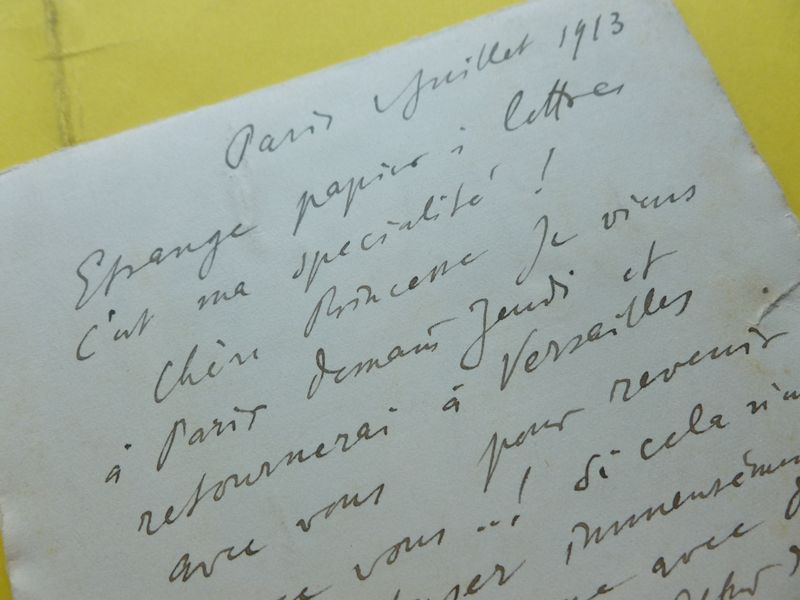 Paris Juillet 1913
Etrange papier à lettres
C'est ma specialité !
Chère Princesse Je viens
à Paris demain Jeudi et
retournerai à Versailles
avec vous pour revenir
vous ...! Si cela n'
immensément
avec